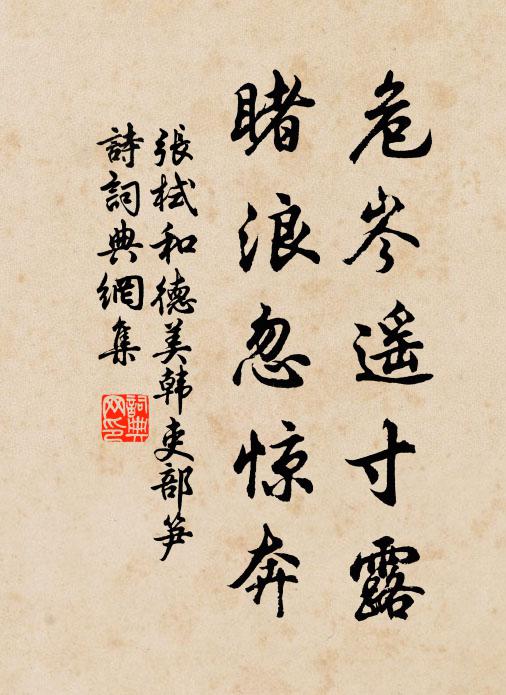 危岑遥寸露
睹浪忽惊奔
張栻和德美韩吏部笋
詩詞典網集
詞典
网印